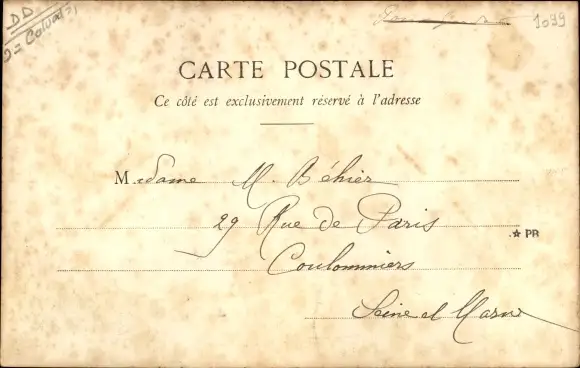 DD
1099
CARTE POSTALE
Ce côté est exclusivement réservé à l'adresse
Madame M. Béhier
29 Rue de Paris
★ PR
Coulommiers
Seine et Marne